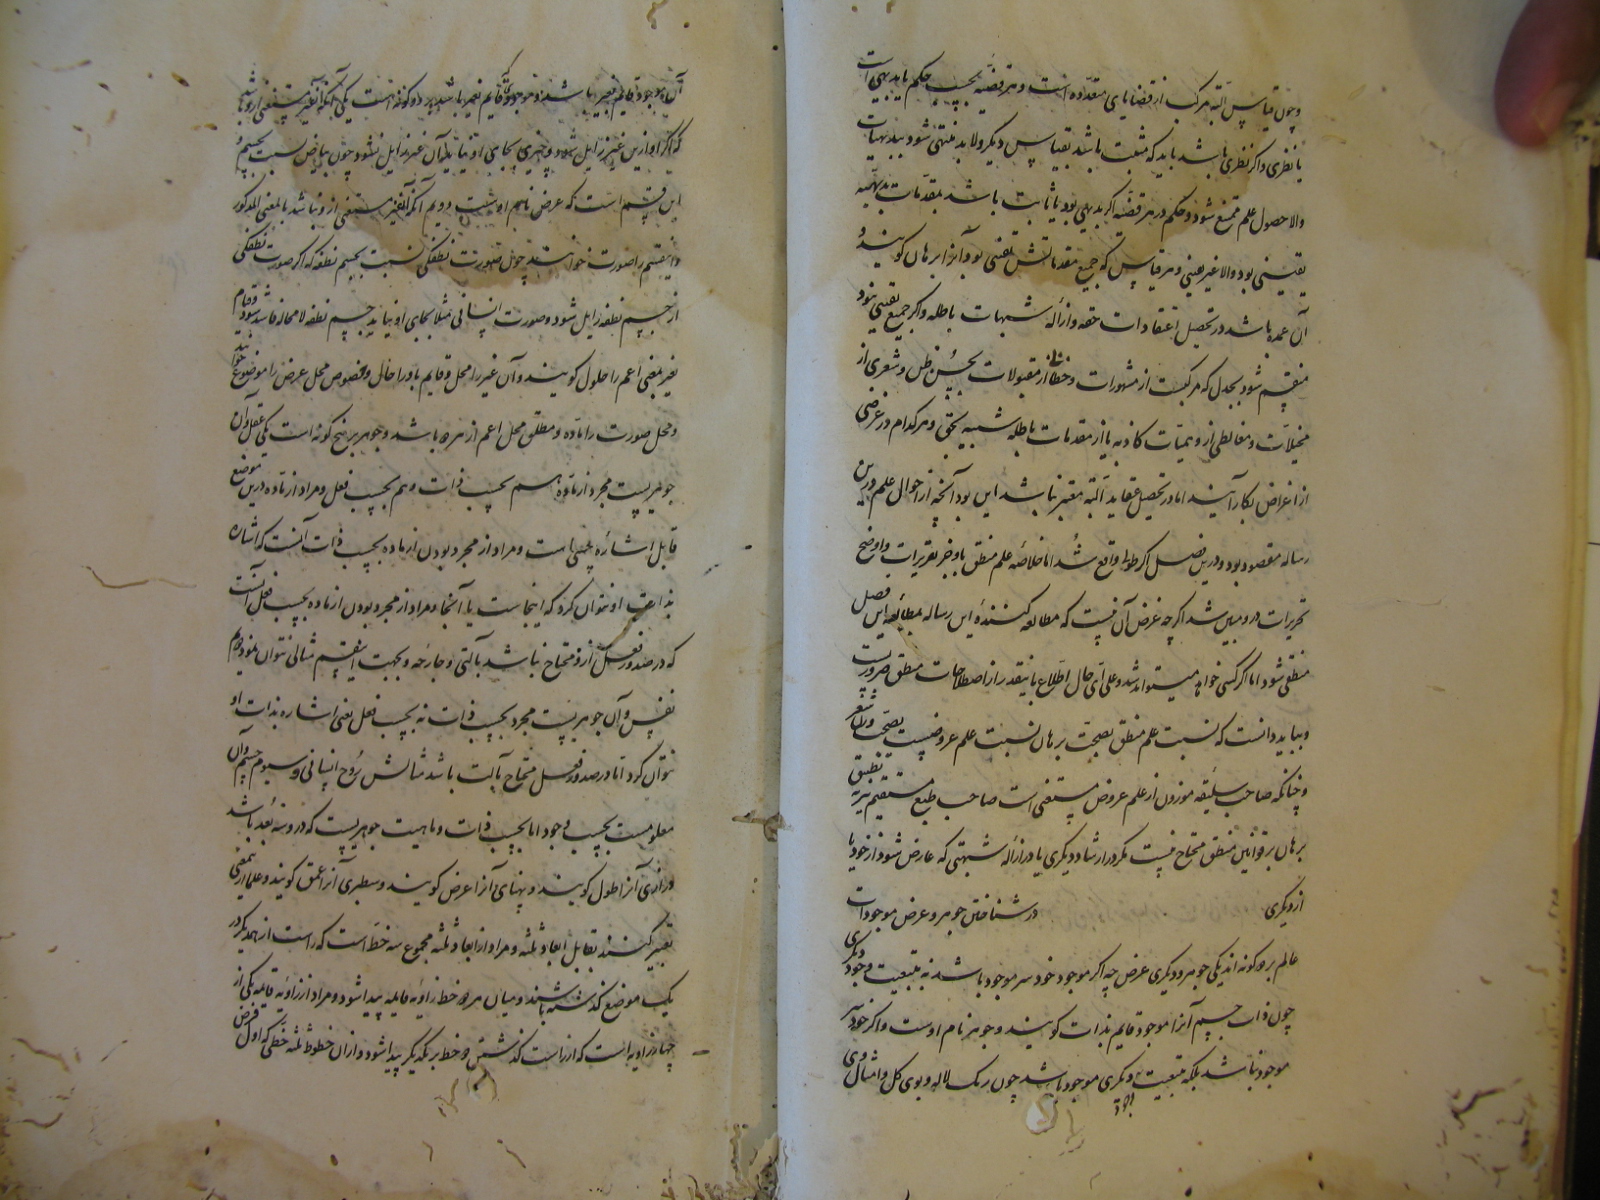 و چون قیاس البته مرکب از قضایای متعدده است و هر قضیه بحسب حکم یا بدیهی است
یا نظری و اگر نظری باشد باید که مثبت باشد بقیاس دیگر و لابد منتهی شود ببدیهیات
والا حصول علم ممتنع شود و حکم در هر قضیه اگر بدیهی بود یا ثابت باشد بمقدمات بدیهیه
یقینی بود والا غیر یقینی و هر قیاس که جمیع مقدماتش یقینی بود آنرا برهان گویند و
آن عمده باشد در تحصیل اعتقادات حقه و ازاله شبهات باطله و اگر جمیع یقینی نبود
منقسم شود بجدل که مرکبست از مشهورات و خطابه از مقبولات بحسن ظن و شعری از
مخیلات و مغالطی از وهمیات کاذبه یا از مقدمات باطله شبیه بحق و هر کدام در غرضی
از اغراض بکار آیند اما در تحصیل عقاید البته معتبر نباشد این بود آنچه از احوال علم درین
رساله مقصود بود و درین فصل اگر طولی واقع شد اما خلاصه علم منطق باوجز تقریرات و اوضح
تحریرات درو مبین شد اگر چه غرض آن نیست که مطالعه کننده این رساله بمطالعه این فصل
منطقی شود اما اگر کسی خواهد میتواند شد و علی ای حال اطلاع باینقدر از اصطلاحات منطق ضروریست
و بباید دانست که نسبت علم منطق بصحت برهان نسبت علم عروضیست بصحت وزن شعر
و چنانکه صاحب سلیقه موزون از علم عروض مستغنی است صاحب طبع مستقیم نیز به تطبیق
برهان بر قوانین منطق محتاج نیست مگر در ارشاد دیگری یا در ازاله شبهتی که عارض شود از خود یا
از دیگری در شناختن جوهر و عرض موجودات
عالم بر دو گونه اند یکی جوهر و دیگری عرض چه اگر موجود خود سر موجود باشد نه بتبعیت وجود دیگری
چون ذات جسم آنرا موجود قایم بذات گویند و جوهر نام اوست و اگر خود سر
موجود نباشد بلکه بتبعیت دیگری موجود باشد چون رنگ لاله و بوی گل و امثال وی
آن موجود قایم بغیر باشد و موجودی که قایم بغیر باشد بر دو گونه است یکی آنکه آنغیر مستغنی از وی باشد
که اگر او ازین غیر زایل شود و چیزی بجای او نیاید آن غیر زایل نشود چون بیاض نسبت بجسم و
این قسم است که عرض نام اوست دویم آنکه آنغیر مستغنی ازو نباشد بالمعنی المذکور
و اینقسم را صورت خوانند چون صورت نطفگی نسبت بجسم نطفه که اگر صورت نطفگی
از جسم نطفه زایل شود و صورت انسانی مثلا بجای او نیاید جسم نطفه لامحاله فاسد شود و قیام
بغیر بمعنی اعم را حلول گویند و آن غیر را محل و قایم باو را حال و بخصوص محل عرض را موضوع خوانند
و محل صورت را ماده و مطلق محل اعم از هر دو باشد و جوهر بر پنج گونه است یکی عقل و آن
جوهریست مجرد از ماده هم بحسب ذات و هم بحسب فعل و مراد از ماده درین موضع
قابل اشاره حسی است و مراد از مجرد بودن از ماده بحسب ذات آنست که اشاره
بذات او نتوان کرد که اینجاست یا آنجا و مراد از مجرد بودن از ماده بحسب فعل آنست
که در صدور فعل ازو محتاج نباشد بآلتی و جارحه و بجهت اینقسم مثالی نتوان نمود دویم
نفس و آن جوهریست مجرد بحسب ذات نه بحسب فعل یعنی اشاره بذات او
نتوان کرد اما در صدور فعل محتاج بآلت باشد مثالش روح انسانی و سیوم جسم و آن
معلومست بحسب وجود اما بحسب ذات و ماهیت جوهریست که درو سه بعد باشد
درازی آنرا طول گویند و پهنای آنرا عرض گویند و سطبری آنرا عمق گویند و علما ازین معنی
تعبیر کنند بقابل ابعاد ثلثه و مراد از ابعاد ثلثه مجموع سه خط است که راست از همدیگر در
یک موضع گذشته باشند و میان هر دو خط زاویه قایمه پیدا شود و مراد از زاویه قایمه یکی از
چهار زاویه است که از راست گذشتن دو خط بر یکدیگر پیدا شود و از آن خطوط ثلثه خطی که اول فرض